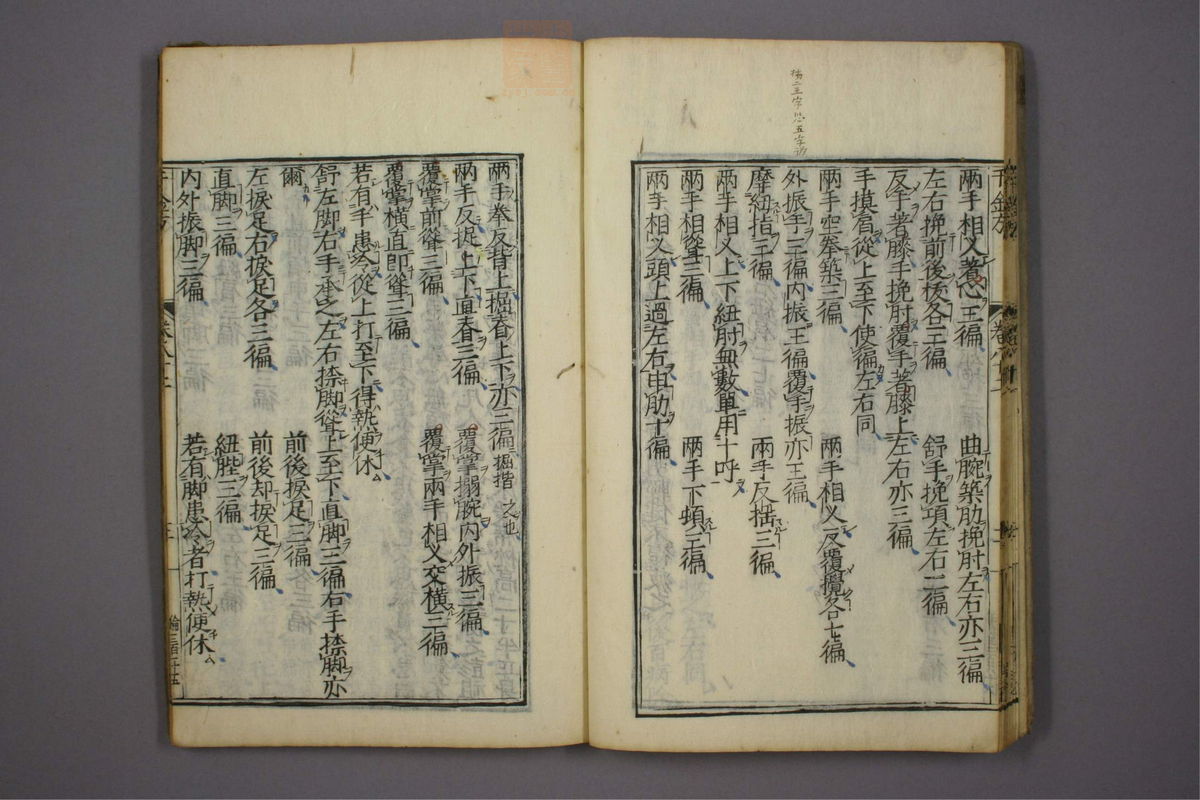 兩手相叉著心王徧 曲腕築肋挽肘左右亦三徧
左右挽前後拔各三徧 舒手挽項左右二徧
反手著膝手挽肘覆手著膝上左右亦三徧
手摸肩從上至下使徧左右同
兩手空拳築三徧 兩手相叉反覆攪各七徧
外振手三徧内振王徧覆手振亦王徧
摩紐指王徧 兩手反搖三徧
兩手相叉上下紐肘無數單用十呼
兩手相聳三徧 兩手下頓三徧
兩手相叉頭上過左右申肋十徧
兩手拳反背上掘脊上下亦三徧 掘揩之也
兩手反捉上下直脊三徧 覆掌搦腕内外振三徧
覆掌前聳三徧 覆掌兩手相叉交橫三徧
覆掌橫直即聳三徧
若有手患冷從上打至下得熱便休
舒左脚右手承之左右捺脚聳上至下直脚三徧右手捺脚亦
爾 前後捩足三徧
左捩足右捩足各三徧 前後却捩足三徧
直脚三徧 紐䏶三徧
内外振脚三徧 若有脚患冷者打熱便休